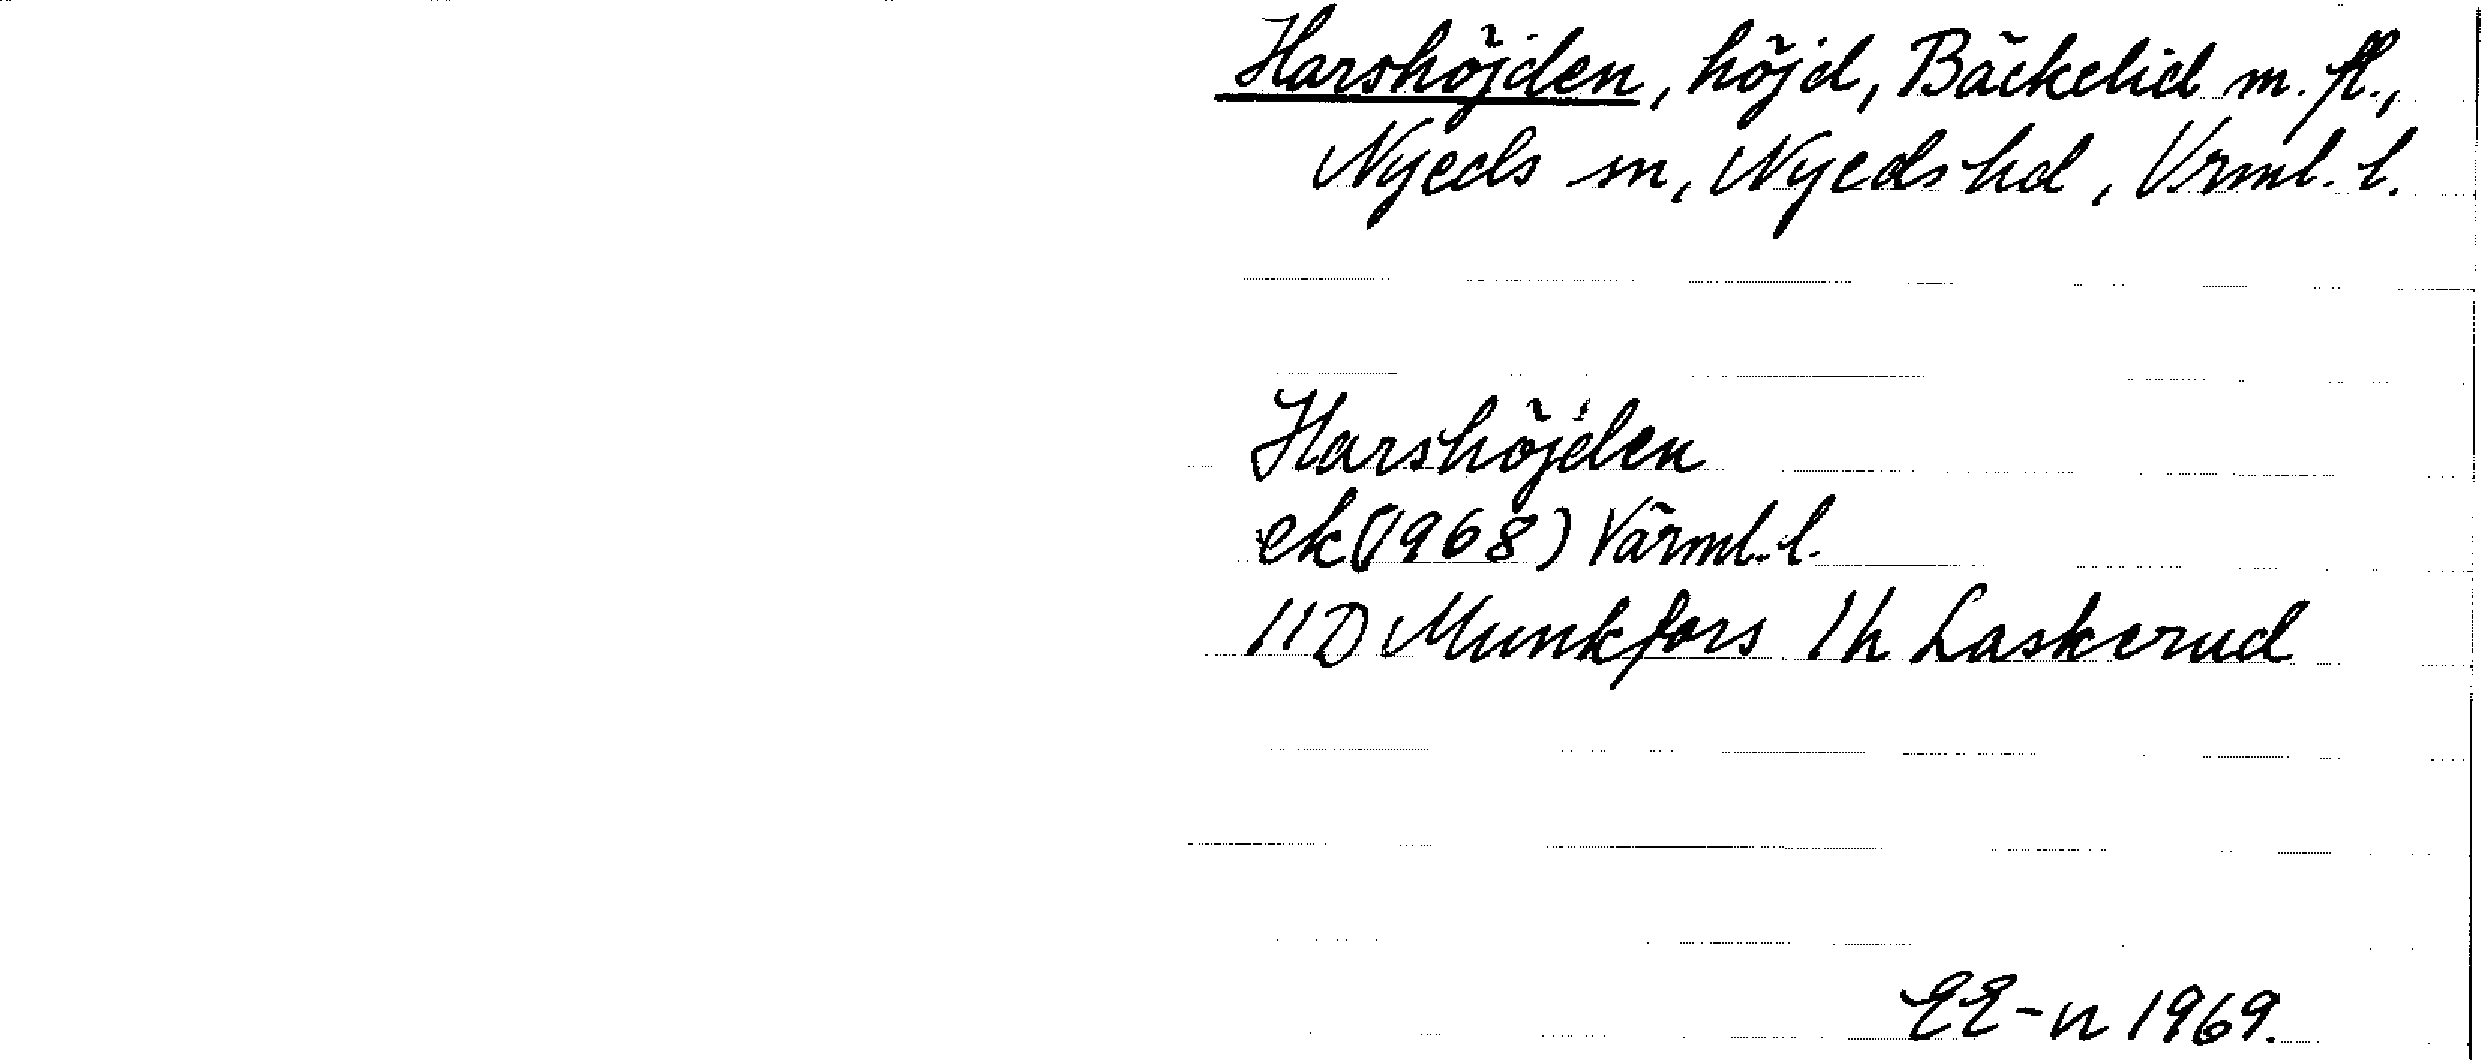 Harshöjden, höjd, Bäckelid m. fl.,
Nyeds sn, Nyeds hd, Vrml. l.
Harshöjden
ek (1968) Värml. l.
11D Munkfors 1h Laskerud
EE-n 1969.